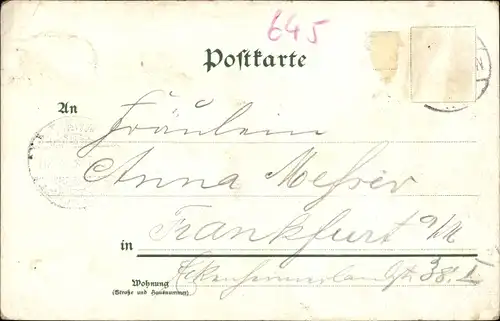 645
Postkarte
An
Fräulein
Anna Messer
in Frankfurt a/M
Wohnung
(Straße und Hausnummer)
38. I